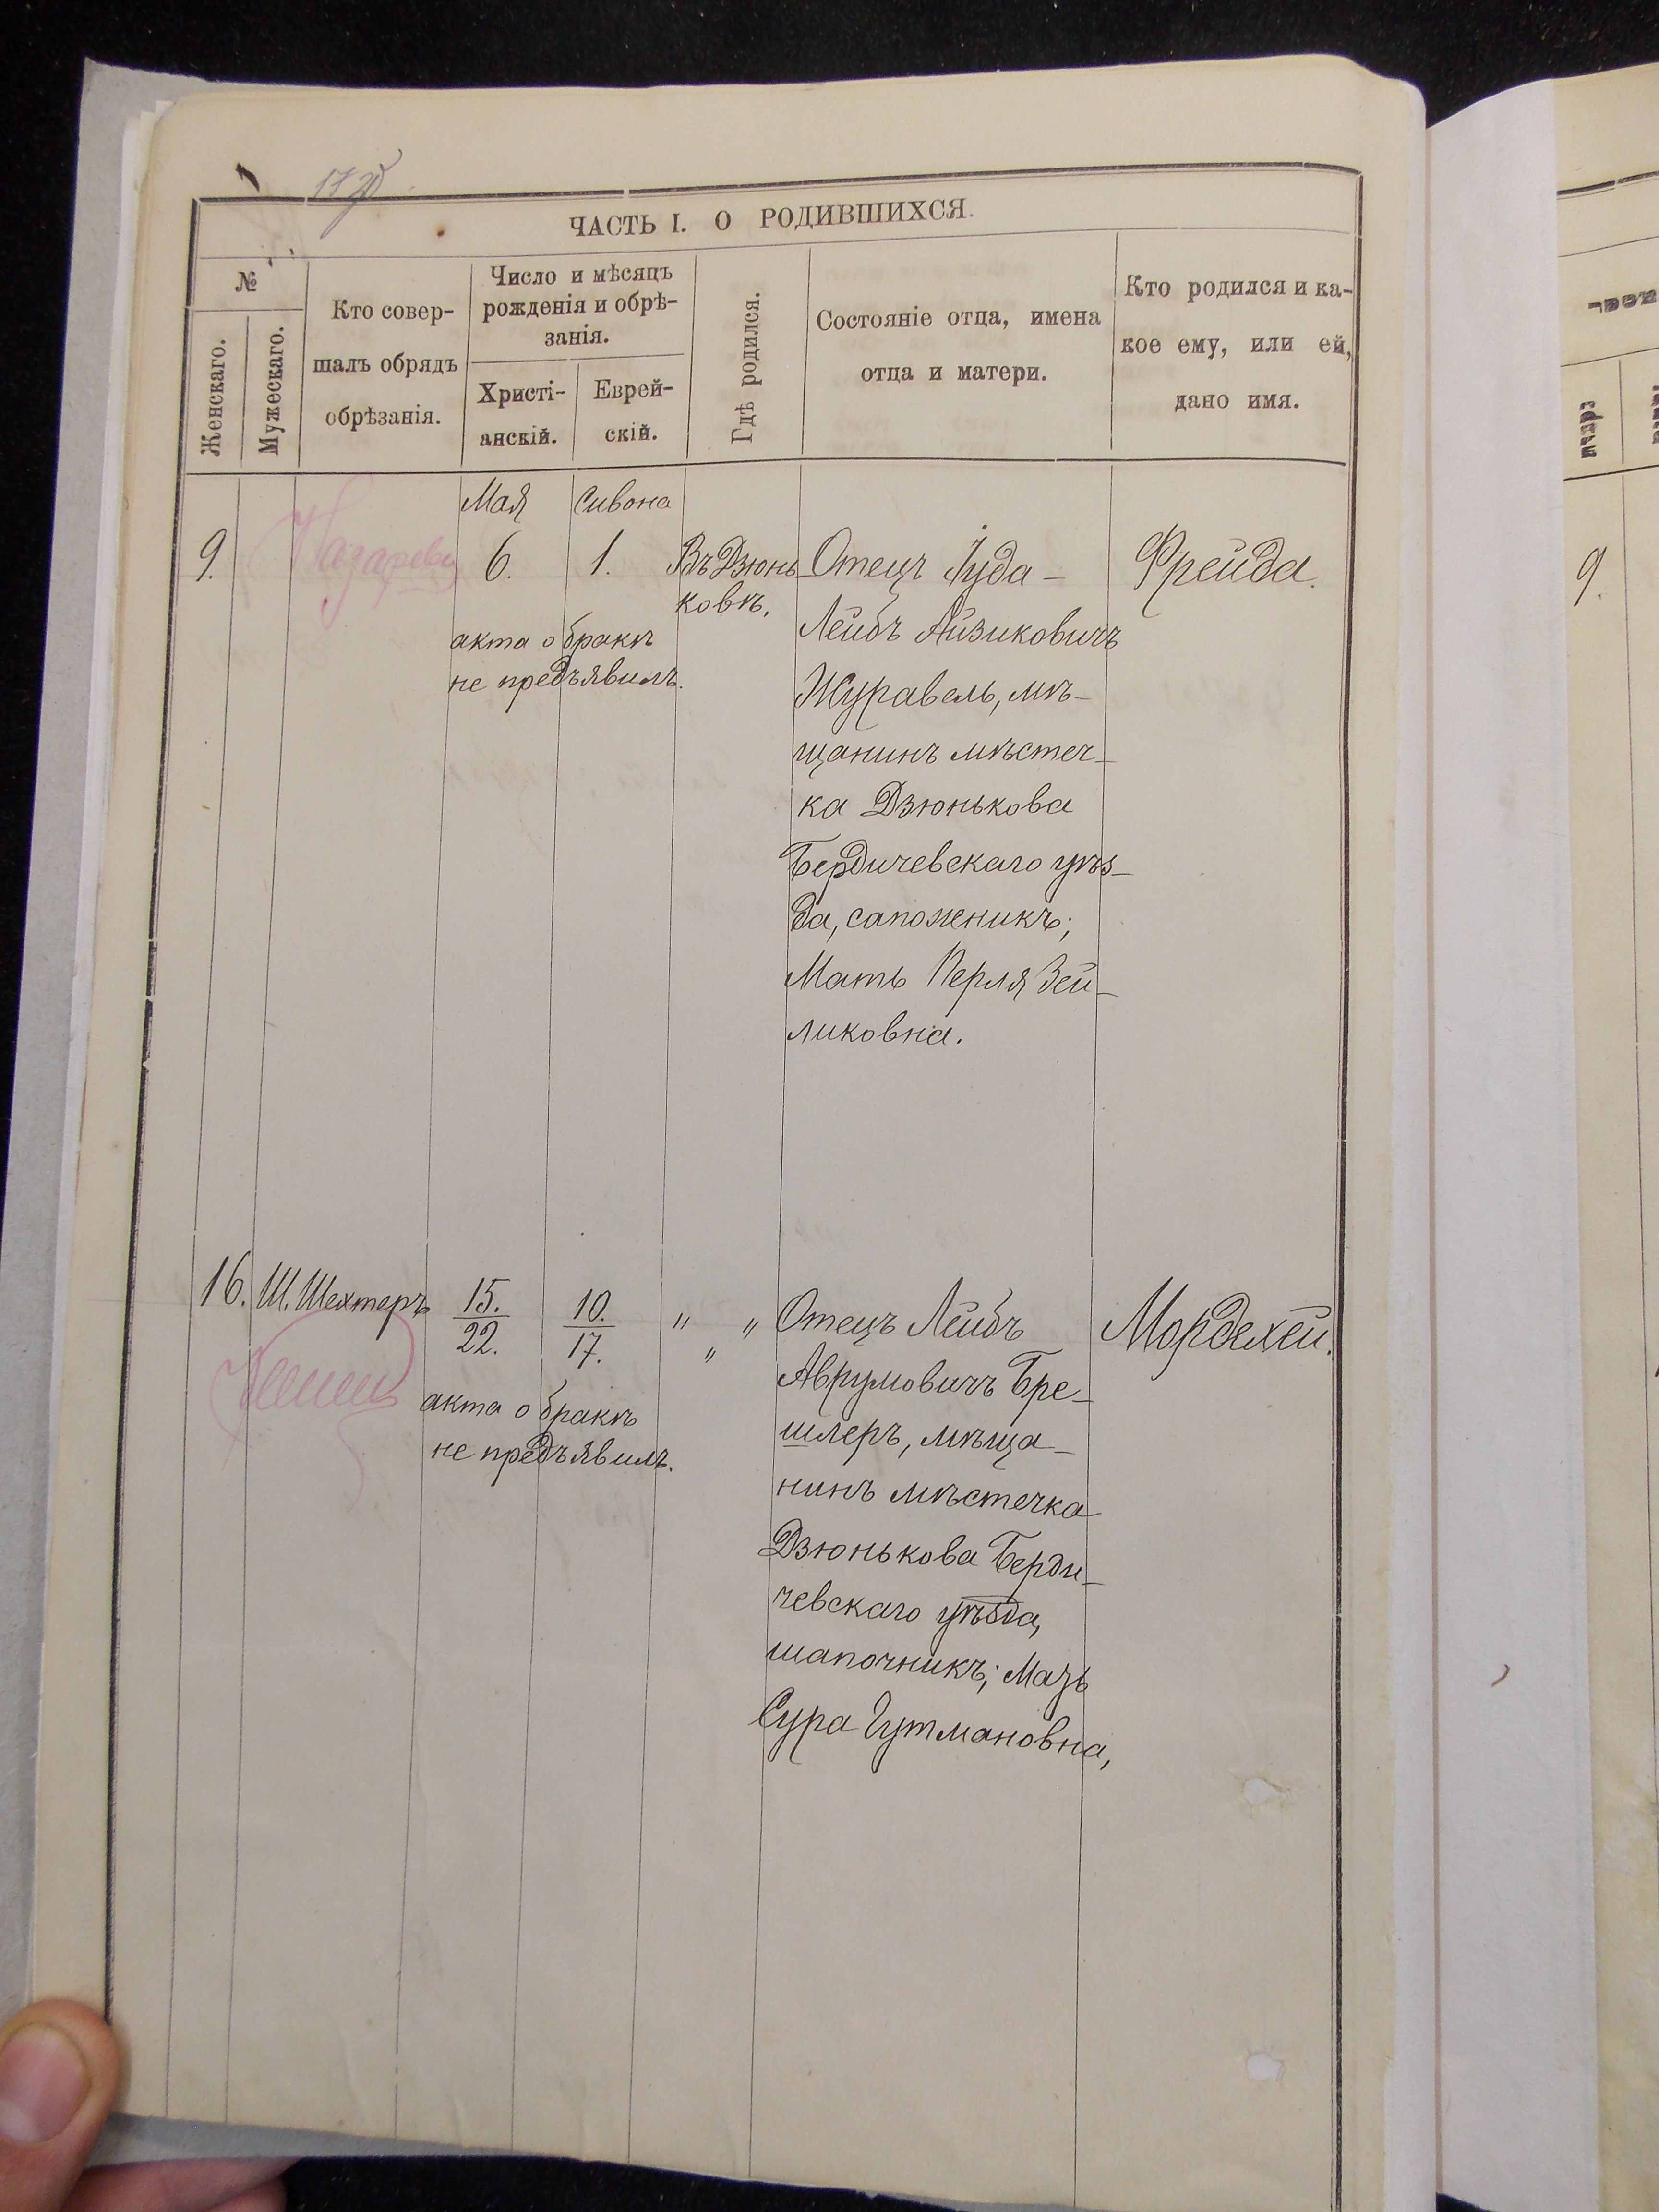 ЧАСТЬ I. О РОДИВШИХСЯ.
№
Женскаго.
Мужескаго.
Кто совер-
шалъ обрядъ
обрѣзанія.
Число и мѣсяцъ
рожденія и обрѣ-
занія.
Христі-
анскій.
Еврей-
скій.
Гдѣ родился.
Состояніе отца, имена
отца и матери.
Кто родился и ка-
кое ему, или ей,
дано имя.
Мая Сивона
9. 6. 1. Въ Дзюнь
ковѣ.
акта о бракѣ
не предъявилъ.
Отецъ Іуда-
Лейбъ Айзиковичъ
Журавель, мѣ-
щанинъ мѣстеч-
ка Дзюнькова
Бердичевскаго уѣз-
да, сапожникъ;
Мать Перля Зей-
ликовна.
Фрейда.
16. Ш. Шехтеръ 15. 10. " "
22. 17. "
акта о бракѣ
не предъявилъ.
Отецъ Лейбъ
Аврумовичъ Бре-
шлеръ, мѣща-
нинъ мѣстечка
Дзюнькова Берди-
чевскаго уѣзда,
шапочникъ; Мать
Сура Гутмановна,
Мордехей.
9.